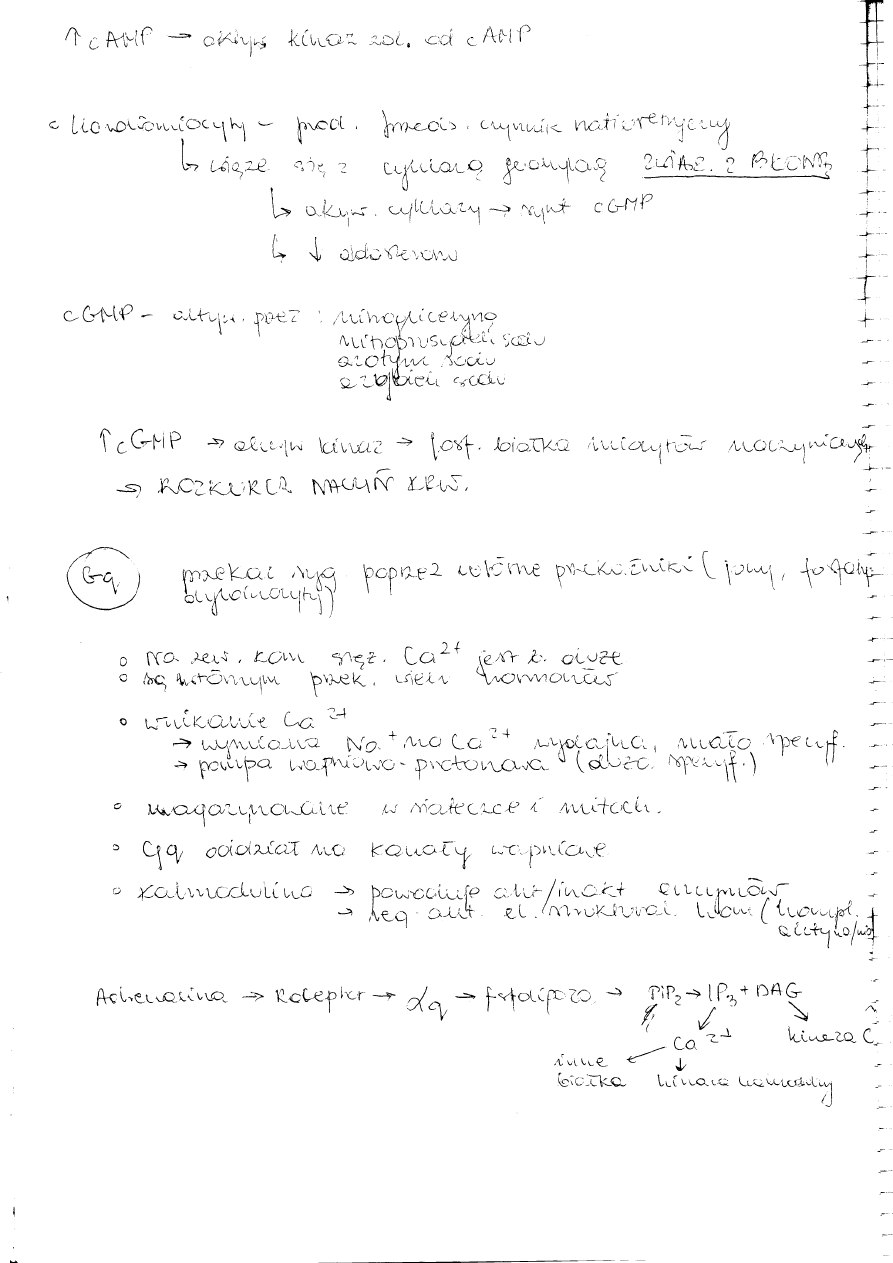 ↑cAMP → aktyw. kinaz zal. od cAMP
Kardiomiocyty – prod. przeds. czynnik natriuretyczny
↳ wiąże się z cyklazą guanylową ZWIĄZ. Z BŁONĄ
↳ aktyw. cyklazy → synt cGMP
↳ ↓ aldosteronu
cGMP – aktyw. przez : nitroglicerynę
nitroprusydek sodu
azotyn sodu
azydek sodu
↑cGMP → aktyw kinaz → fosf. białka miocytów naczyniowych
→ ROZKURCZ NACZYŃ KRW.
Gq przekaź syg poprzez wtórne przekaźniki (jony, fosfatydyloinozyty)
○ Na zew. kom stęż. Ca²⁺ jest b. duże
○ są wtórnym przek. wielu hormonów
○ wnikanie Ca²⁺
→ wymiana Na⁺ na Ca²⁺ wydajna, mało specyf.
→ pompa wapniowo-protonowa (duża specyf.)
○ magazynowane w siateczce i mitoch.
○ Gq oddział na kanały wapniowe
○ Kalmodulina → powoduje akt/inakt enzymów
→ reg akt. el. struktural. kom (kompl.
Adrenalina → Receptor → αq → fosfolipaza → PIP₂ → IP₃ + DAG
Ca²⁺ kinaza C
inne
białka kinaza kalmoduliny